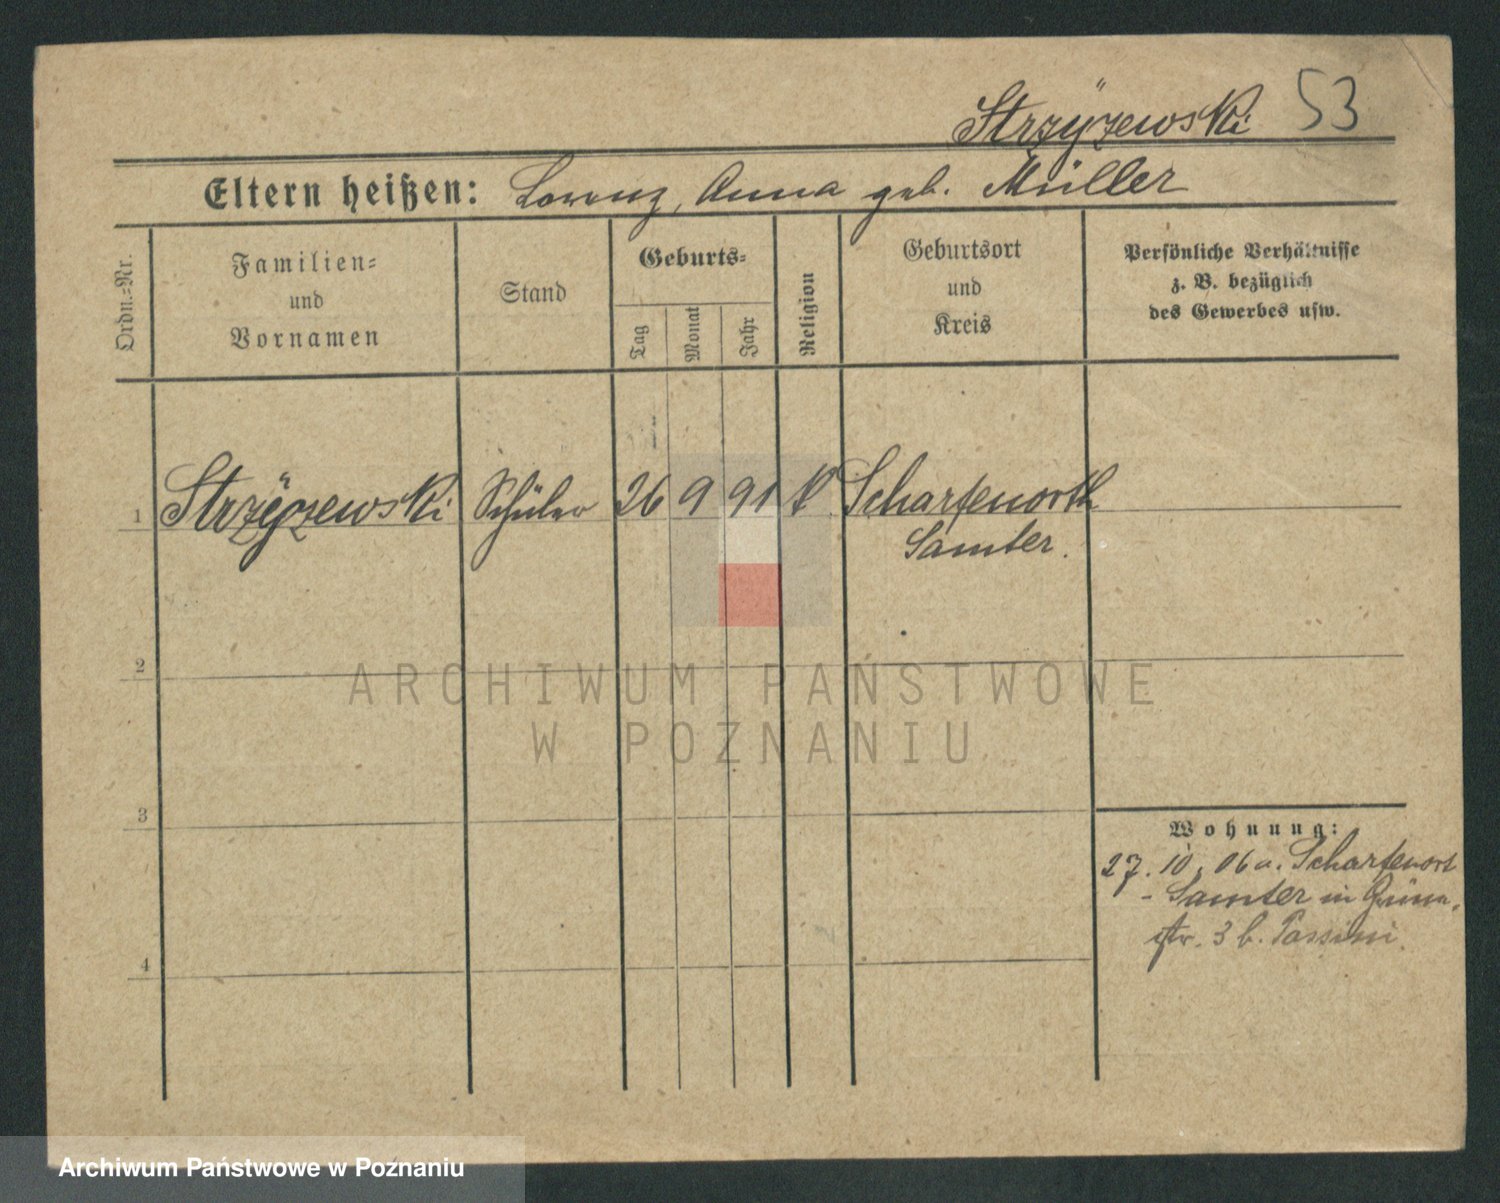 Strzÿzewski 53
Eltern heißen: Lorenz, Anna geb. Müller
Ordn.-Nr.
Familien-
und
Vornamen
Stand
Geburts-
Tag
Monat
Jahr
Religion
Geburtsort
und
Kreis
Persönliche Verhältnisse
z. B. bezüglich
des Gewerbes usw.
1 Strzÿzewski Schüler 26 9 91 k Scharfenorth
Samter.
2
ARCHIWUM PAŃSTWOWE
W POZNANIU
3
Wohnung:
27. 10. 06 a. Scharfenort
- Samter in Grün-
str. 3 b. Passini.
4
Archiwum Państwowe w Poznaniu